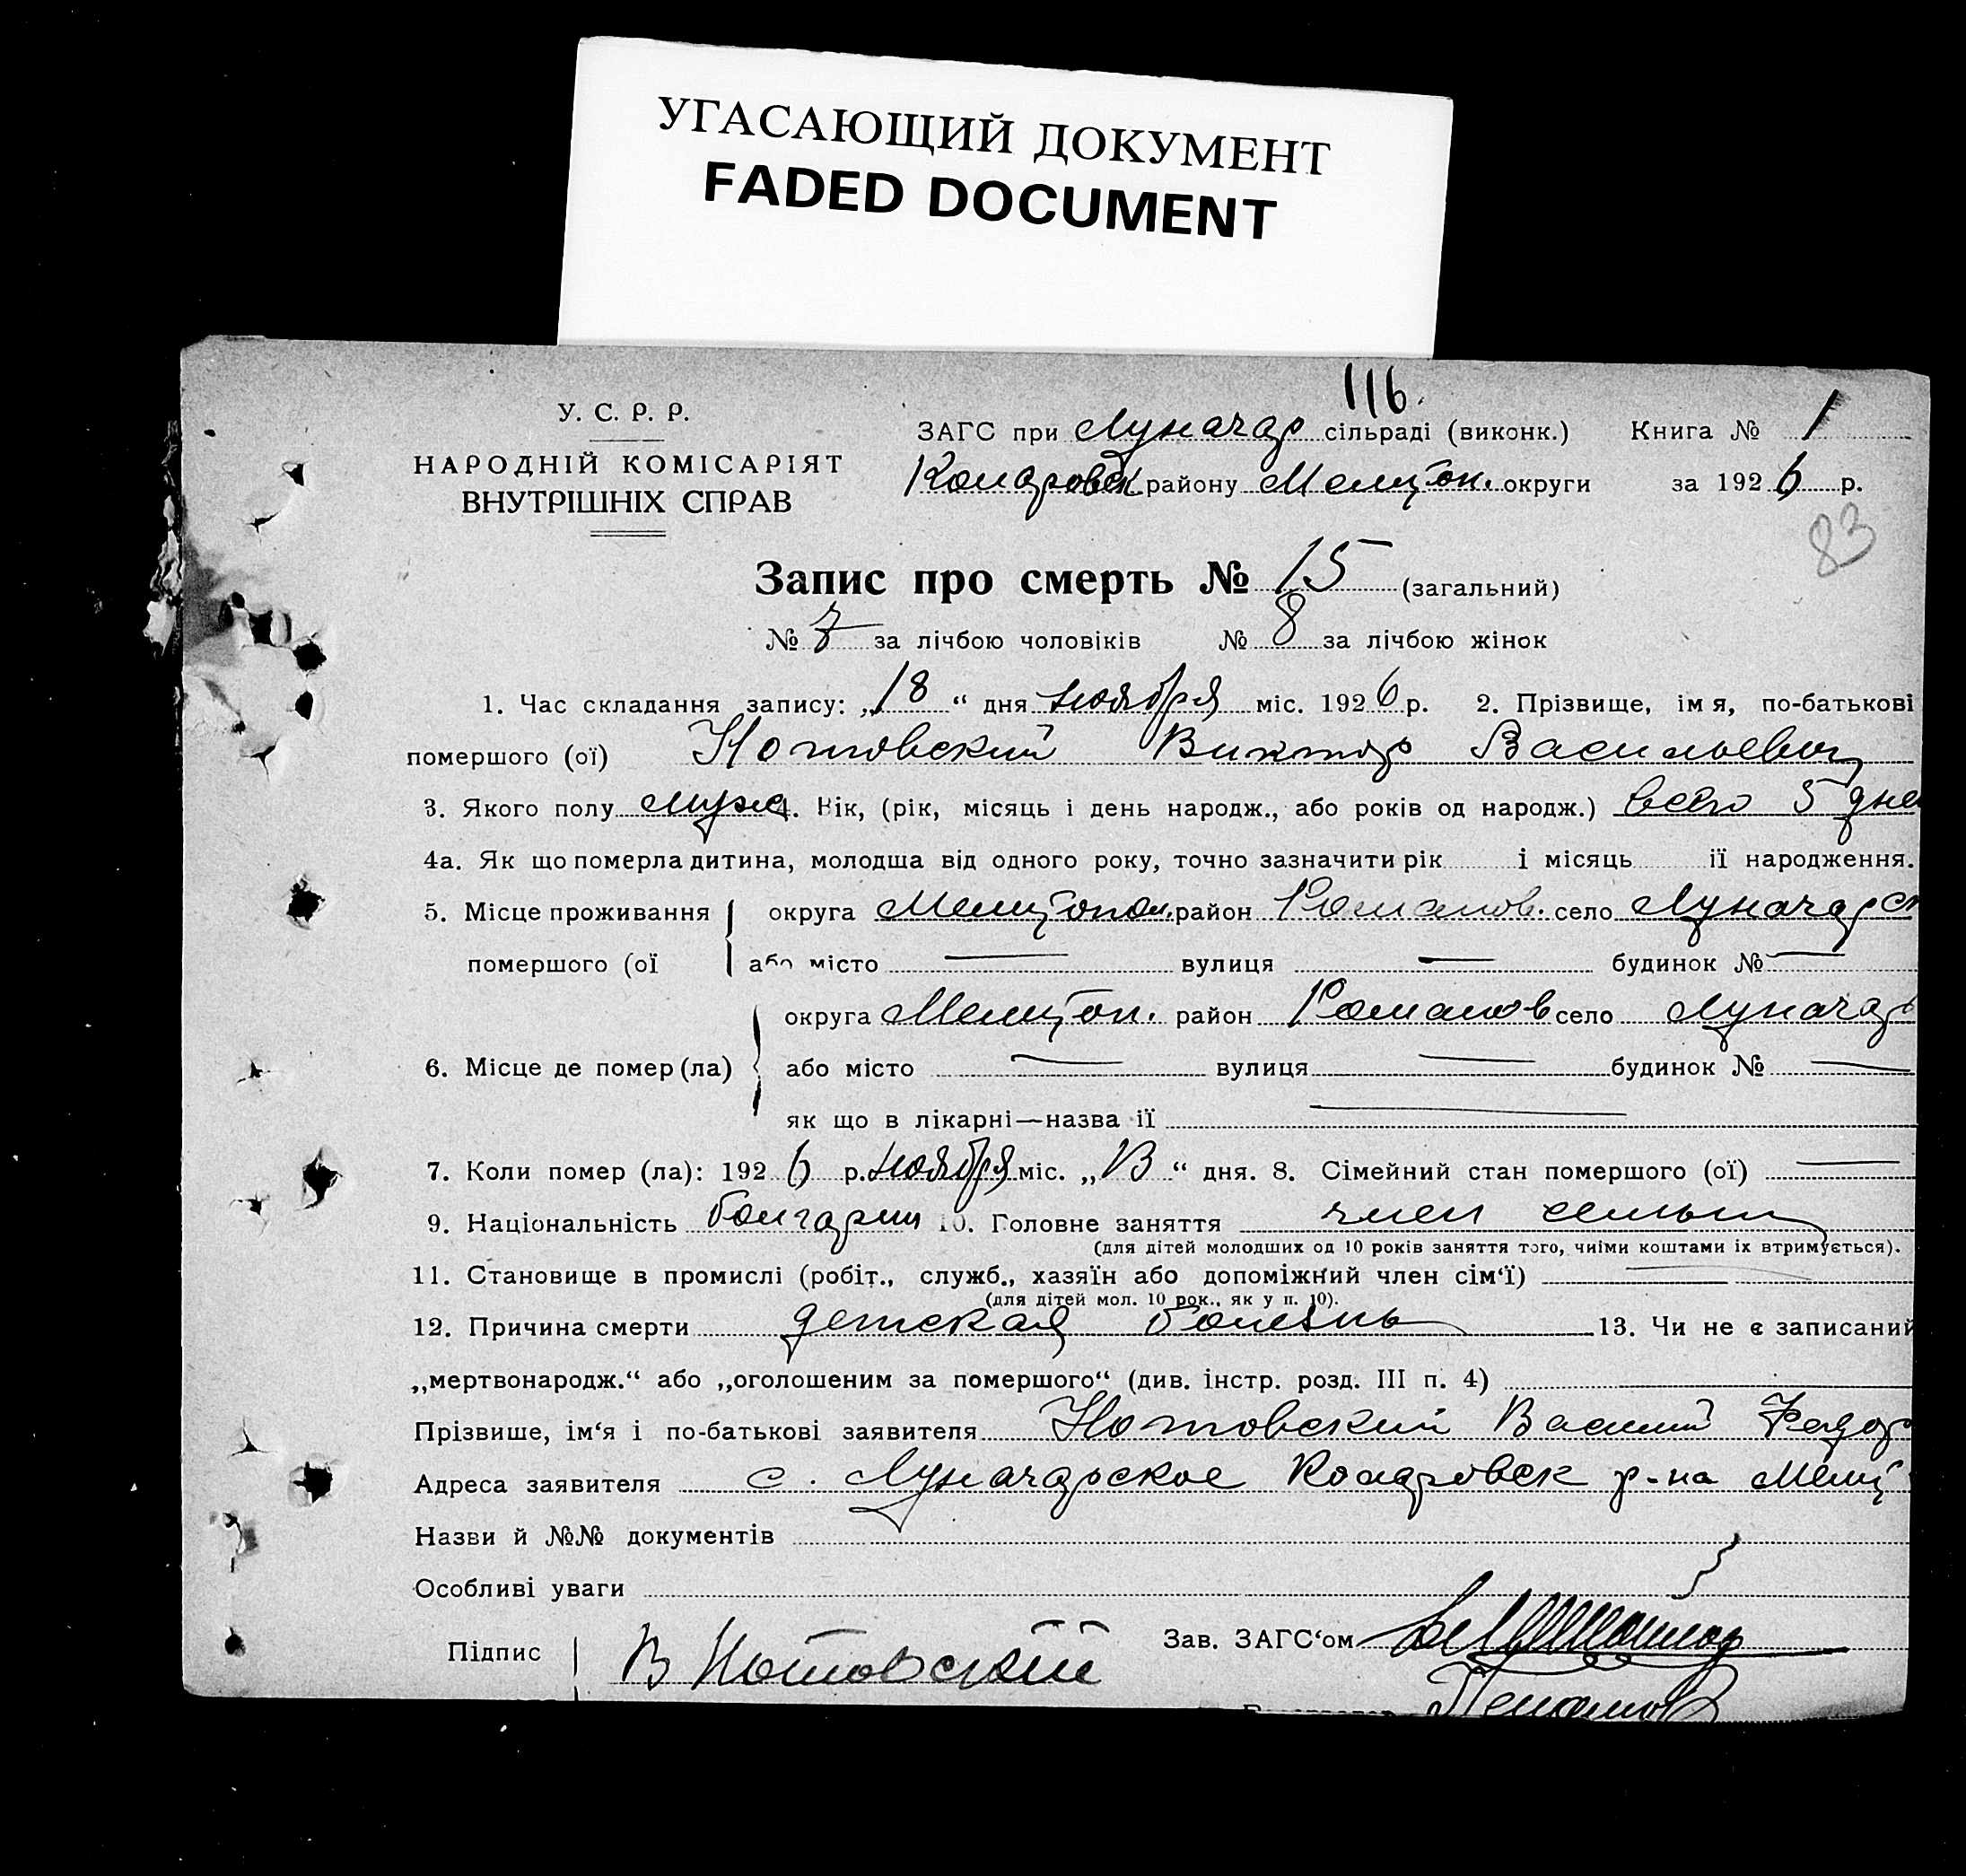 УГАСАЮЩИЙ ДОКУМЕНТ
FADED DOCUMENT
116.
У. С. Р. Р.
НАРОДНІЙ КОМІСАРІЯТ
ВНУТРІШНІХ СПРАВ
ЗАГС при Луначар сільраді (виконк.) Книга № 1
району Мелитоп. округи за 1926 р.
83
Запис про смерть № 15 (загальний)
№ 7 за лічбою чоловіків № 8 за лічбою жінок
1. Час складання запису: „18“ дня ноября міс. 1926 р. 2. Прізвище, імя, по-батькові
помершого (ої) Нотовский Виктор Васильевич
3. Якого полу муже 4. Вік, (рік, місяць і день народж., або років од народж.) всего 5 дне
4а. Як що померла дитина, молодша від одного року, точно зазначити рік і місяць її народження.
5. Місце проживання округа Мелитопол. район Романов. село Луначарск
помершого (ої або місто — вулиця — будинок № —
округа Мелитоп. район Романов село Луначар
6. Місце де помер (ла) або місто — вулиця — будинок № —
як що в лікарні—назва її —
7. Коли помер (ла): 1926 р. ноября міс. „13“ дня. 8. Сімейний стан помершого (ої) —
9. Національність болгарин 10. Головне заняття член семьи
(для дітей молодших од 10 років заняття того, чиїми коштами їх втримується).
11. Становище в промислі (робіт., служб., хазяїн або допоміжний член сім‘ї) —
(для дітей мол. 10 рок., як у п. 10).
12. Причина смерти детская болезнь 13. Чи не є записаний
„мертвонародж.“ або „оголошеним за помершого“ (див. інстр. розд. III п. 4)
Прізвише, ім‘я і по-батькові заявителя Нотовский Василий Федор
Адреса заявителя с. Луначарское р-на Мелит
Назви й №№ документів
Особливі уваги
Підпис В Нотовский Зав. ЗАГС‘ом